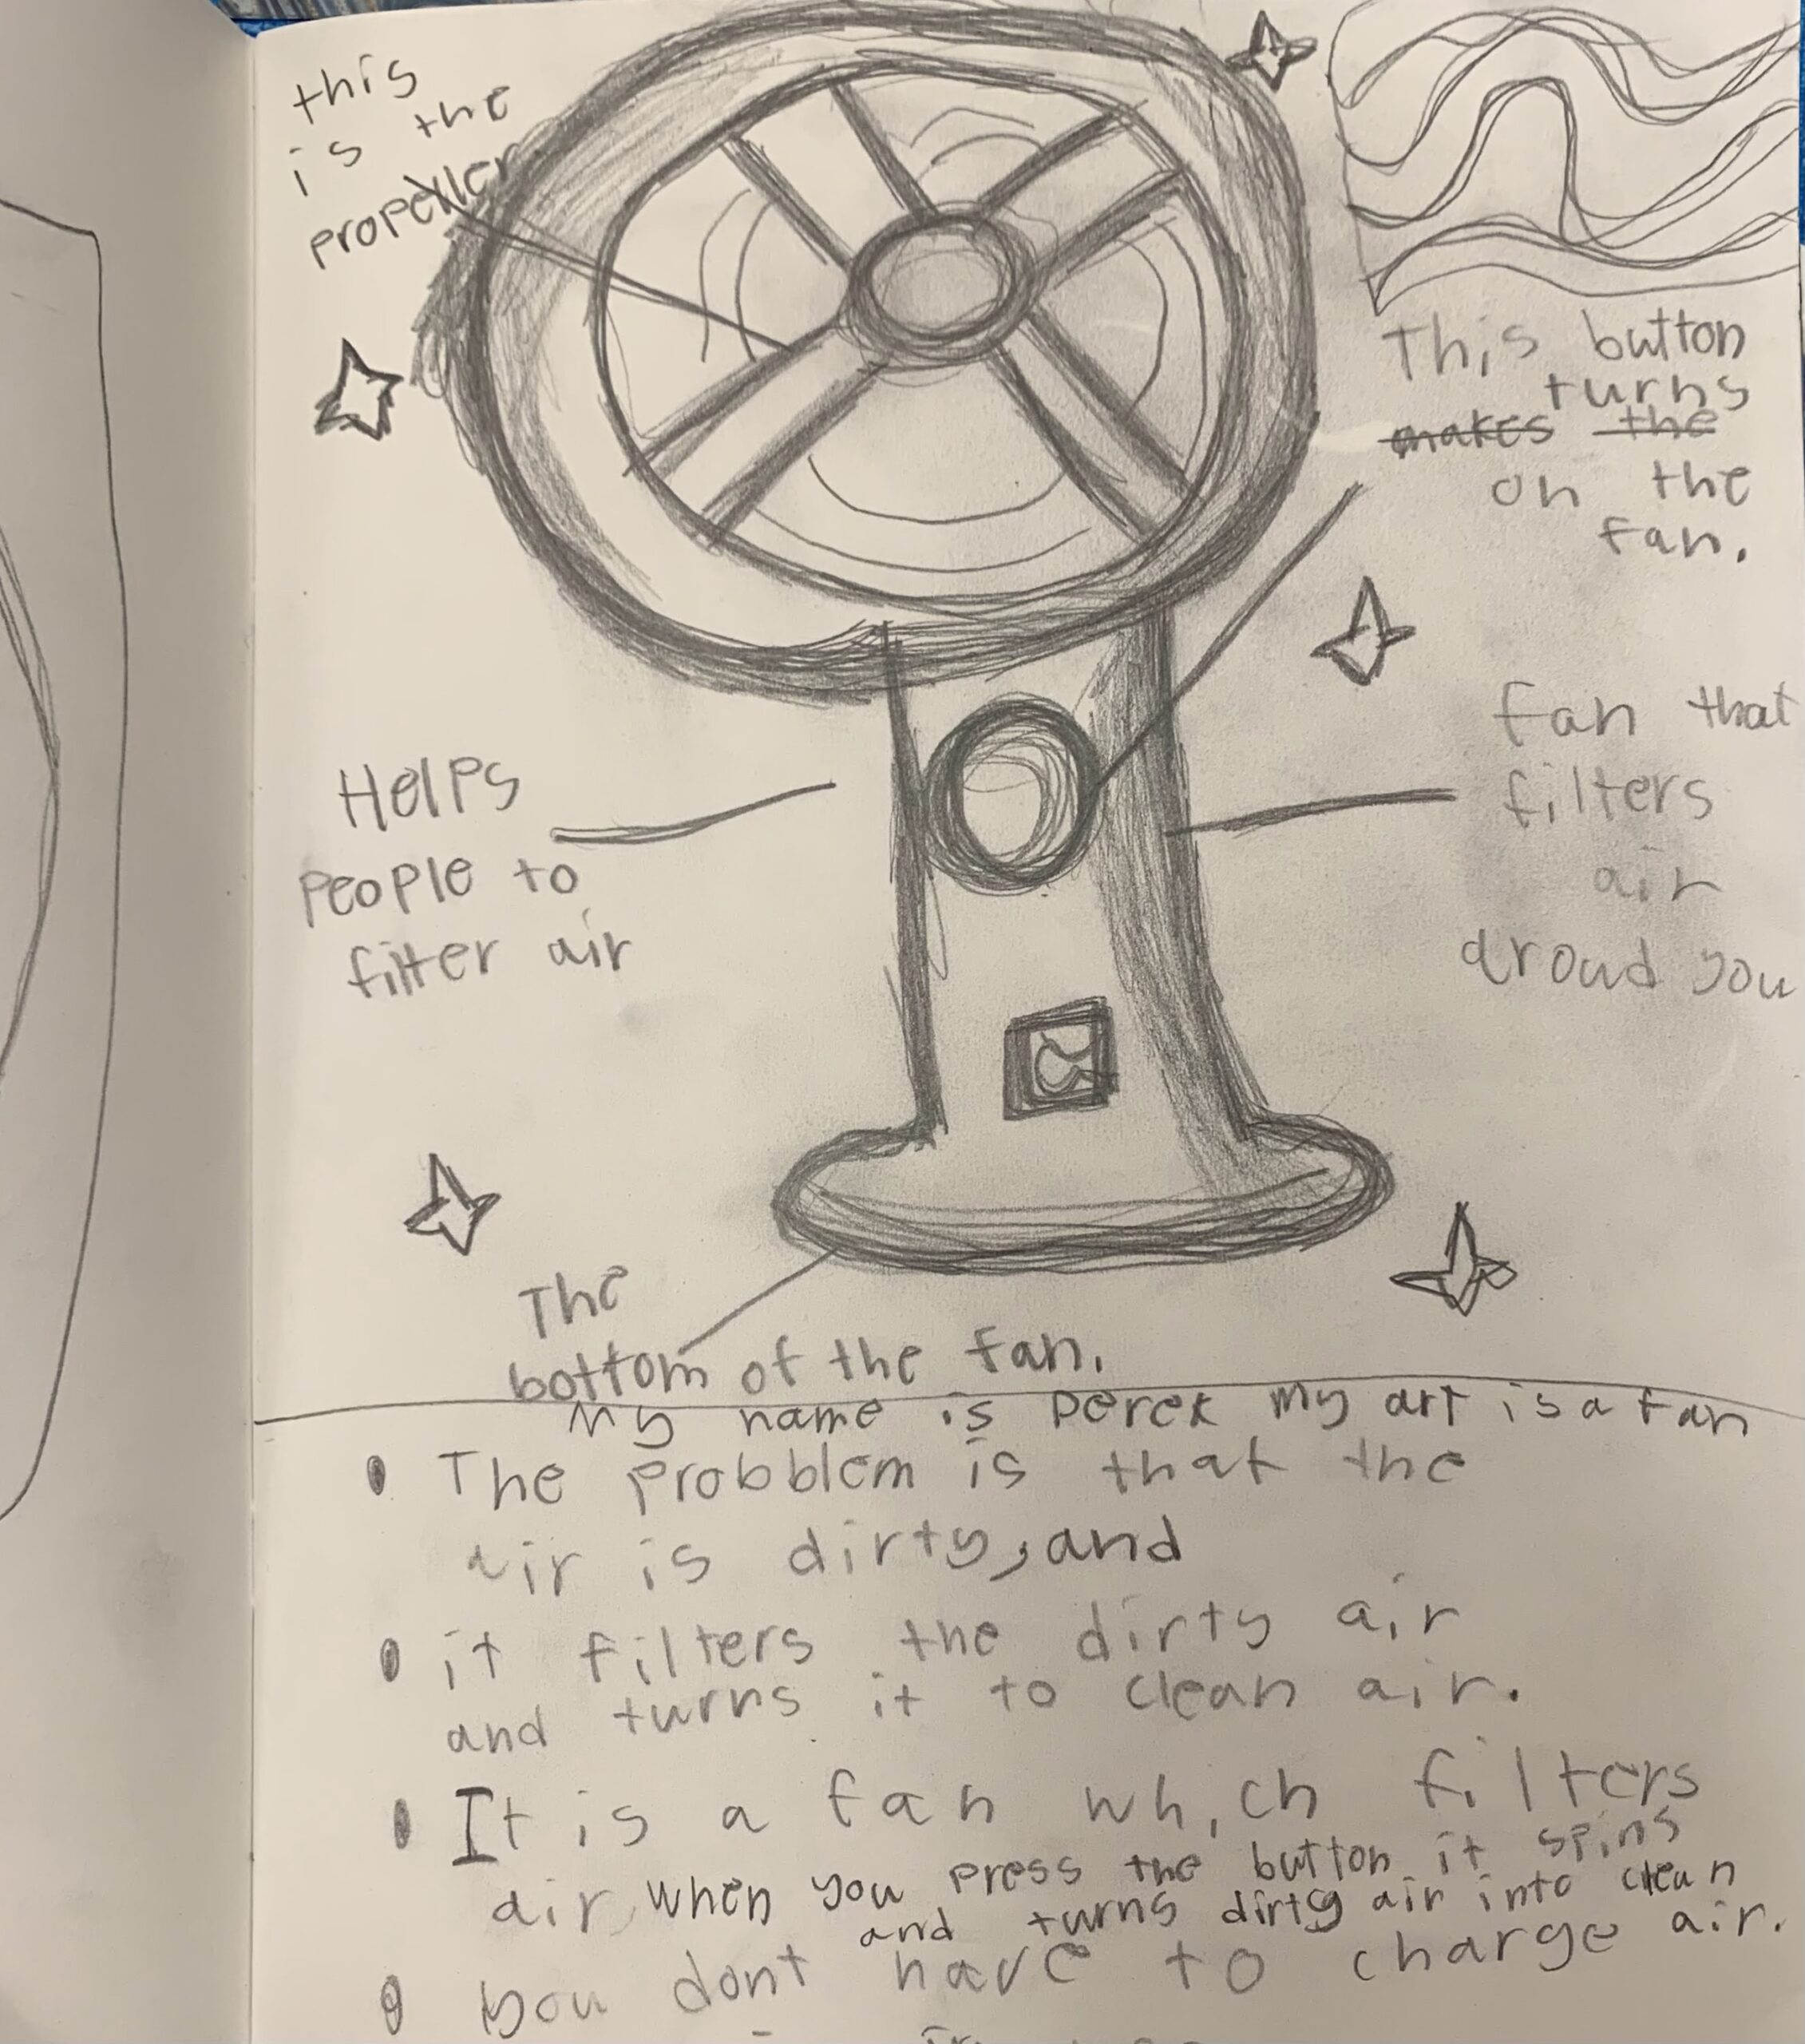 this
is the
propeller
This button
turns
makes the
on the
fan.
fan that
filters
air
aroud you
Helps
People to
filter air
The
bottom of the fan.
My name is Derek My art is a fan
The probblem is that the
air is dirty, and
it filters the dirty air
and turns it to clean air.
It is a fan which filters
air, when you press the button it spins
and turns dirty air into clean
air.
you dont have to charge